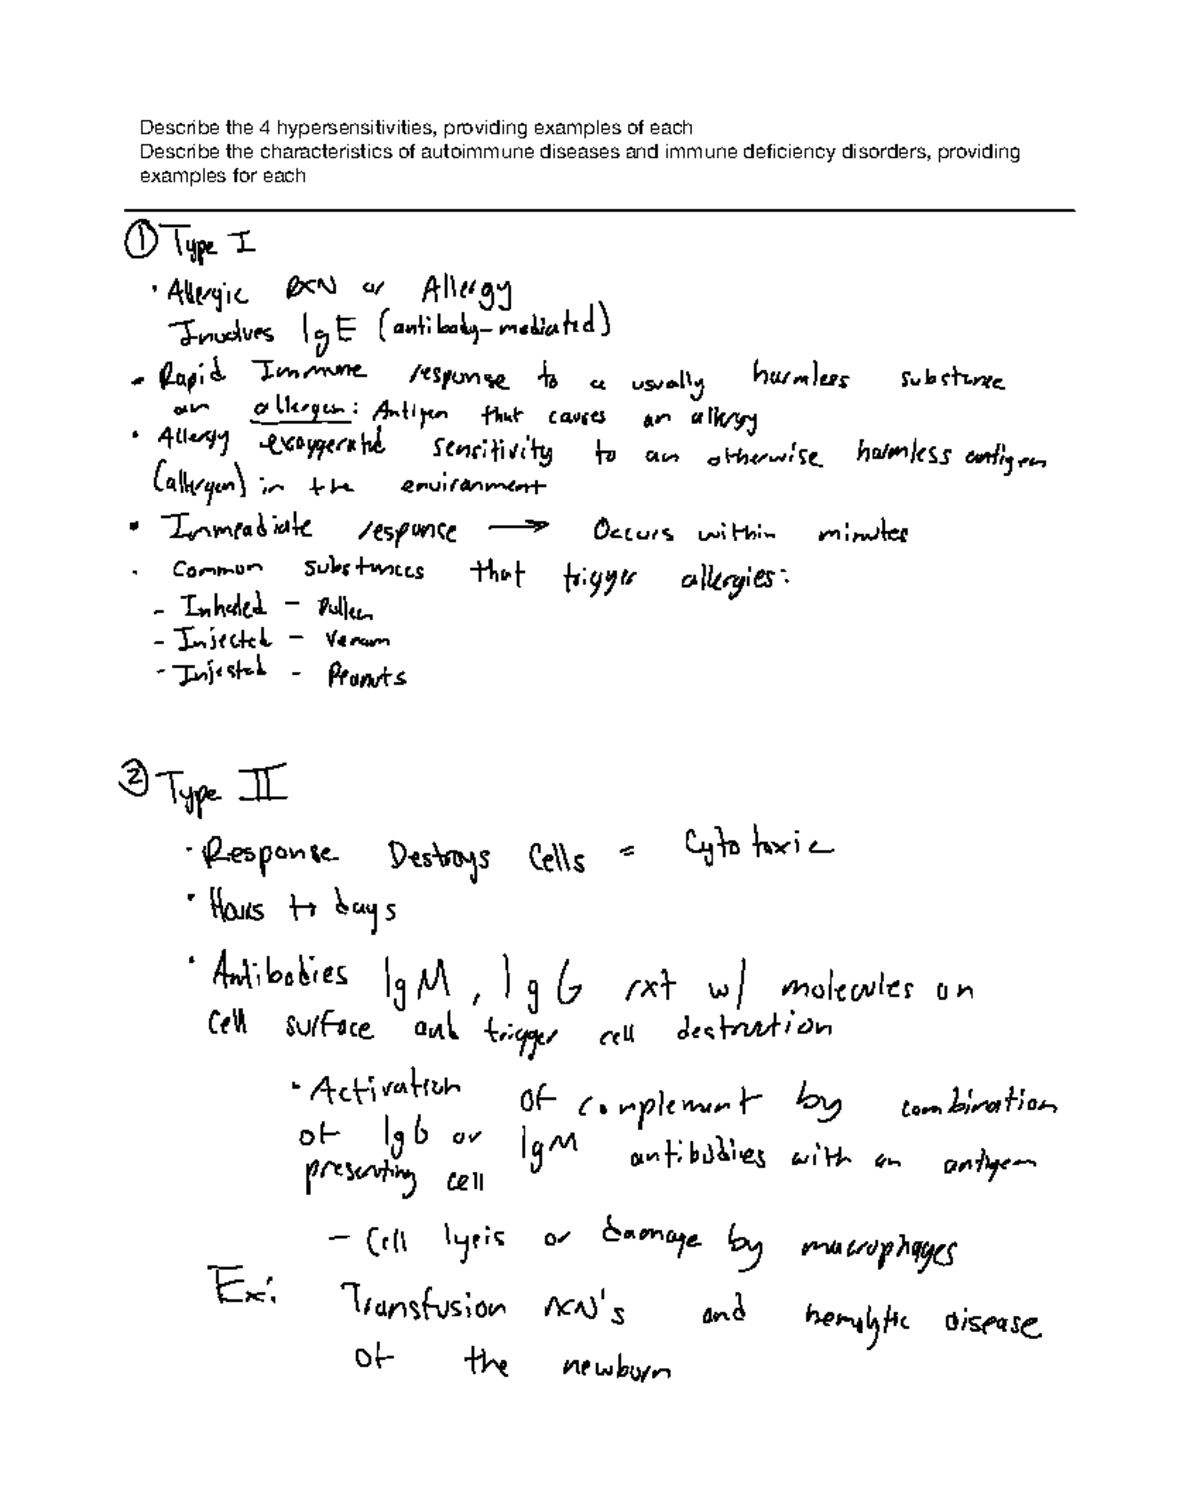 Describe the 4 hypersensitivities, providing examples of each
Describe the characteristics of autoimmune diseases and immune deficiency disorders, providing
examples for each
① Type I
· Allergic RXN or Allergy
Involves IgE (antibody-mediated)
- Rapid Immune response to a usually harmless substance
an allergen: Antigen that causes an allergy
· Allergy exaggerated sensitivity to an otherwise harmless antigen
(allergen) in the environment
· Immeadiate response → Occurs within minutes
· Common Substances that trigger allergies:
- Inhaled - Pollen
- Injected - Venom
- Injested - Peanuts
② Type II
· Response Destroys Cells = Cytotoxic
· Hours to days
· Antibodies IgM, IgG rxt w/ molecules on
cell surface and trigger cell destruction
· Activation of complement by combination
of IgG or IgM antibodies with an antigen
presenting cell
- Cell lysis or damage by macrophages
Ex: Transfusion RXN's and hemolytic disease
of the newborn